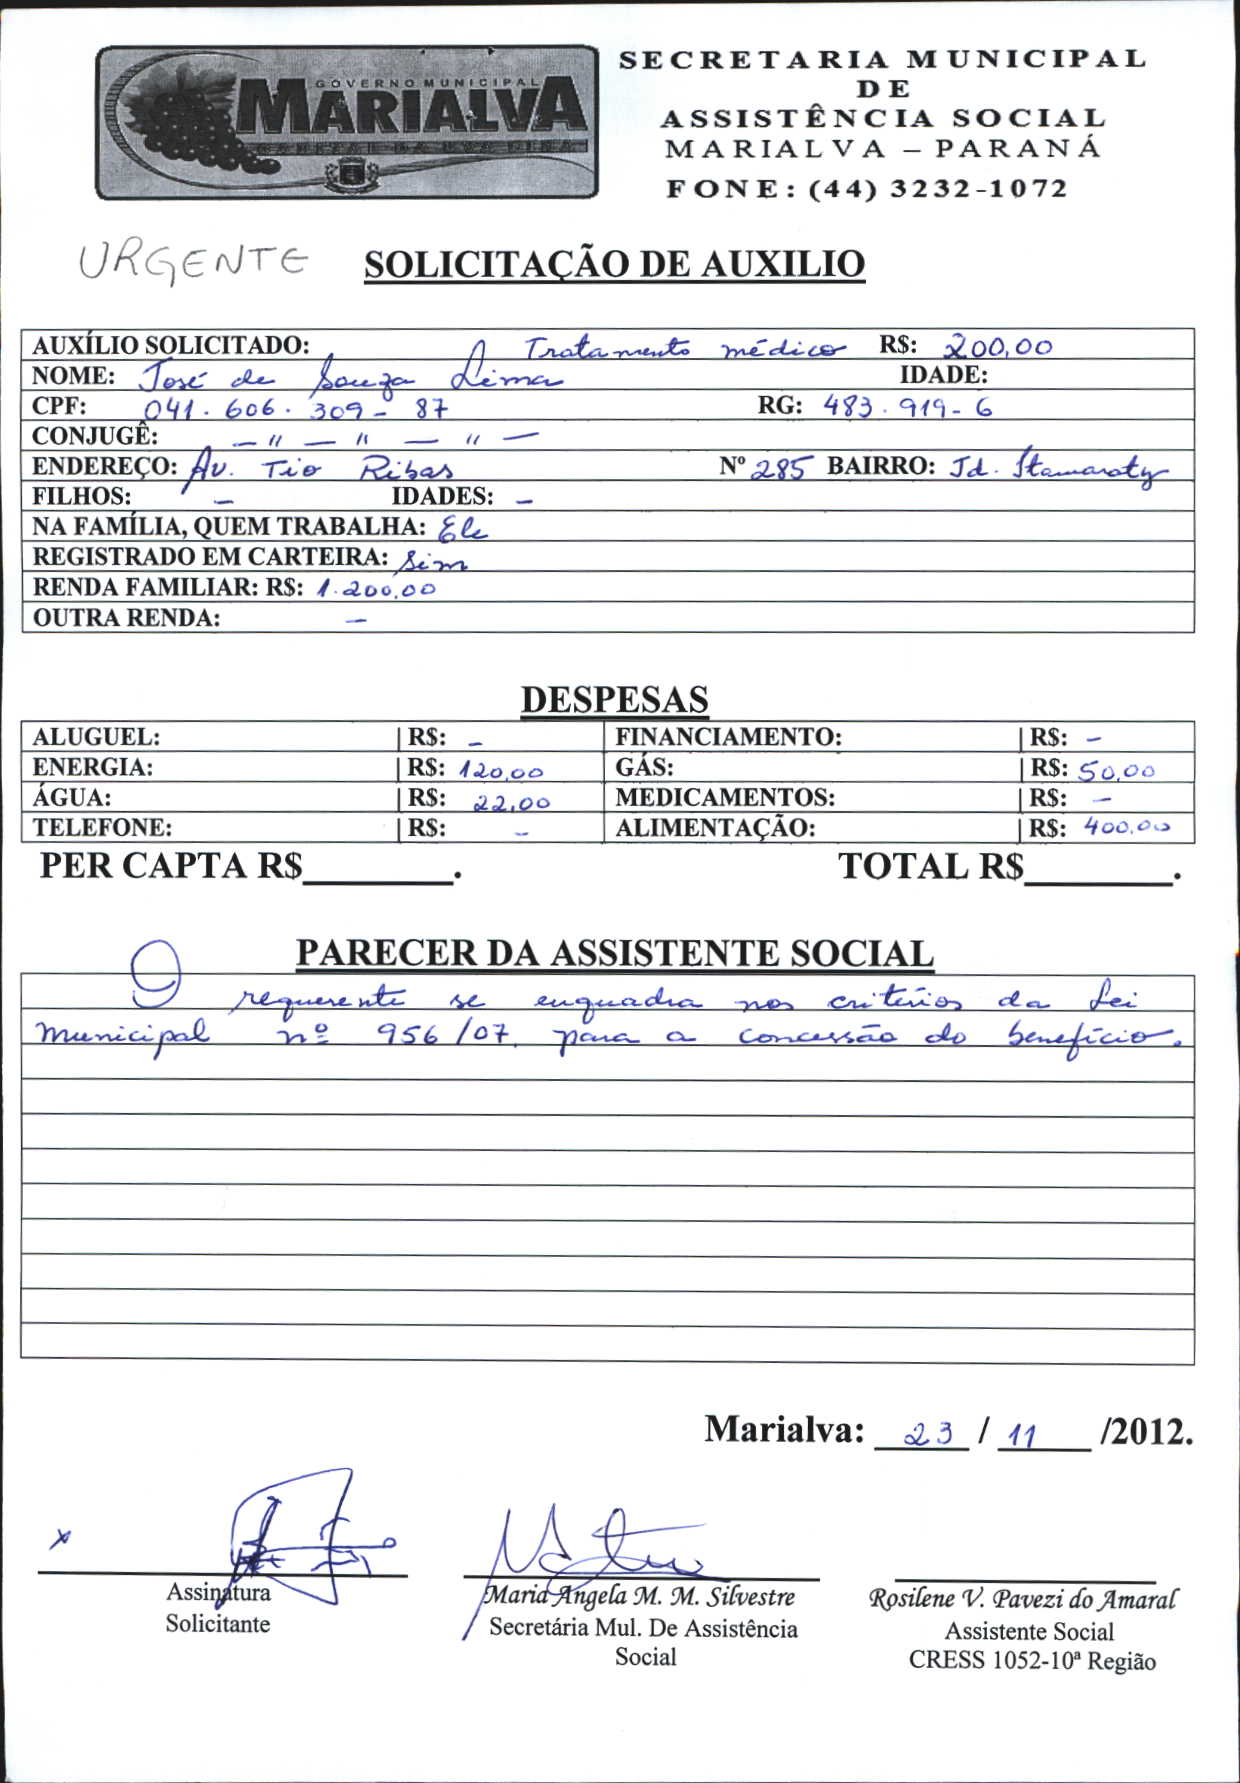 GOVERNO MUNICIPAL
MARIALVA
CAPITAL DA UVA FINA
SECRETARIA MUNICIPAL
DE
ASSISTÊNCIA SOCIAL
MARIALVA – PARANÁ
FONE: (44) 3232-1072
URGENTE SOLICITAÇÃO DE AUXILIO
AUXÍLIO SOLICITADO: Tratamento médico R$: 200,00
NOME: José de Souza Lima IDADE:
CPF: 041.606.309-87 RG: 483.919-6
CONJUGÊ: — " — " — " —
ENDEREÇO: Av. Tio Ribas Nº 285 BAIRRO: Jd. Itamaraty
FILHOS: - IDADES: -
NA FAMÍLIA, QUEM TRABALHA: Ele
REGISTRADO EM CARTEIRA: Sim
RENDA FAMILIAR: R$: 1.200,00
OUTRA RENDA: -
DESPESAS
ALUGUEL: | R$: - FINANCIAMENTO: | R$: -
ENERGIA: | R$: 120,00 GÁS: | R$: 50,00
ÁGUA: | R$: 22,00 MEDICAMENTOS: | R$: -
TELEFONE: | R$: - ALIMENTAÇÃO: | R$: 400,00
PER CAPTA R$________. TOTAL R$________.
PARECER DA ASSISTENTE SOCIAL
O requerente se enquadra nos critérios da Lei
Municipal nº 956/07, para a concessão do benefício.
Marialva: 23 / 11 /2012.
x
Assinatura
Solicitante
Maria Angela M. M. Silvestre
Secretária Mul. De Assistência
Social
Rosilene V. Pavezi do Amaral
Assistente Social
CRESS 1052-10ª Região